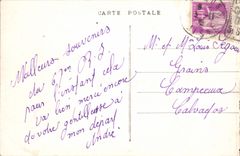 CARTE POSTALE
Meilleurs souvenirs
du
pour l'instant cela
va bien merci encore
de votre gentillesse à
mon départ
André
M et Mme Louis
Grains
Campeaux
Calvados